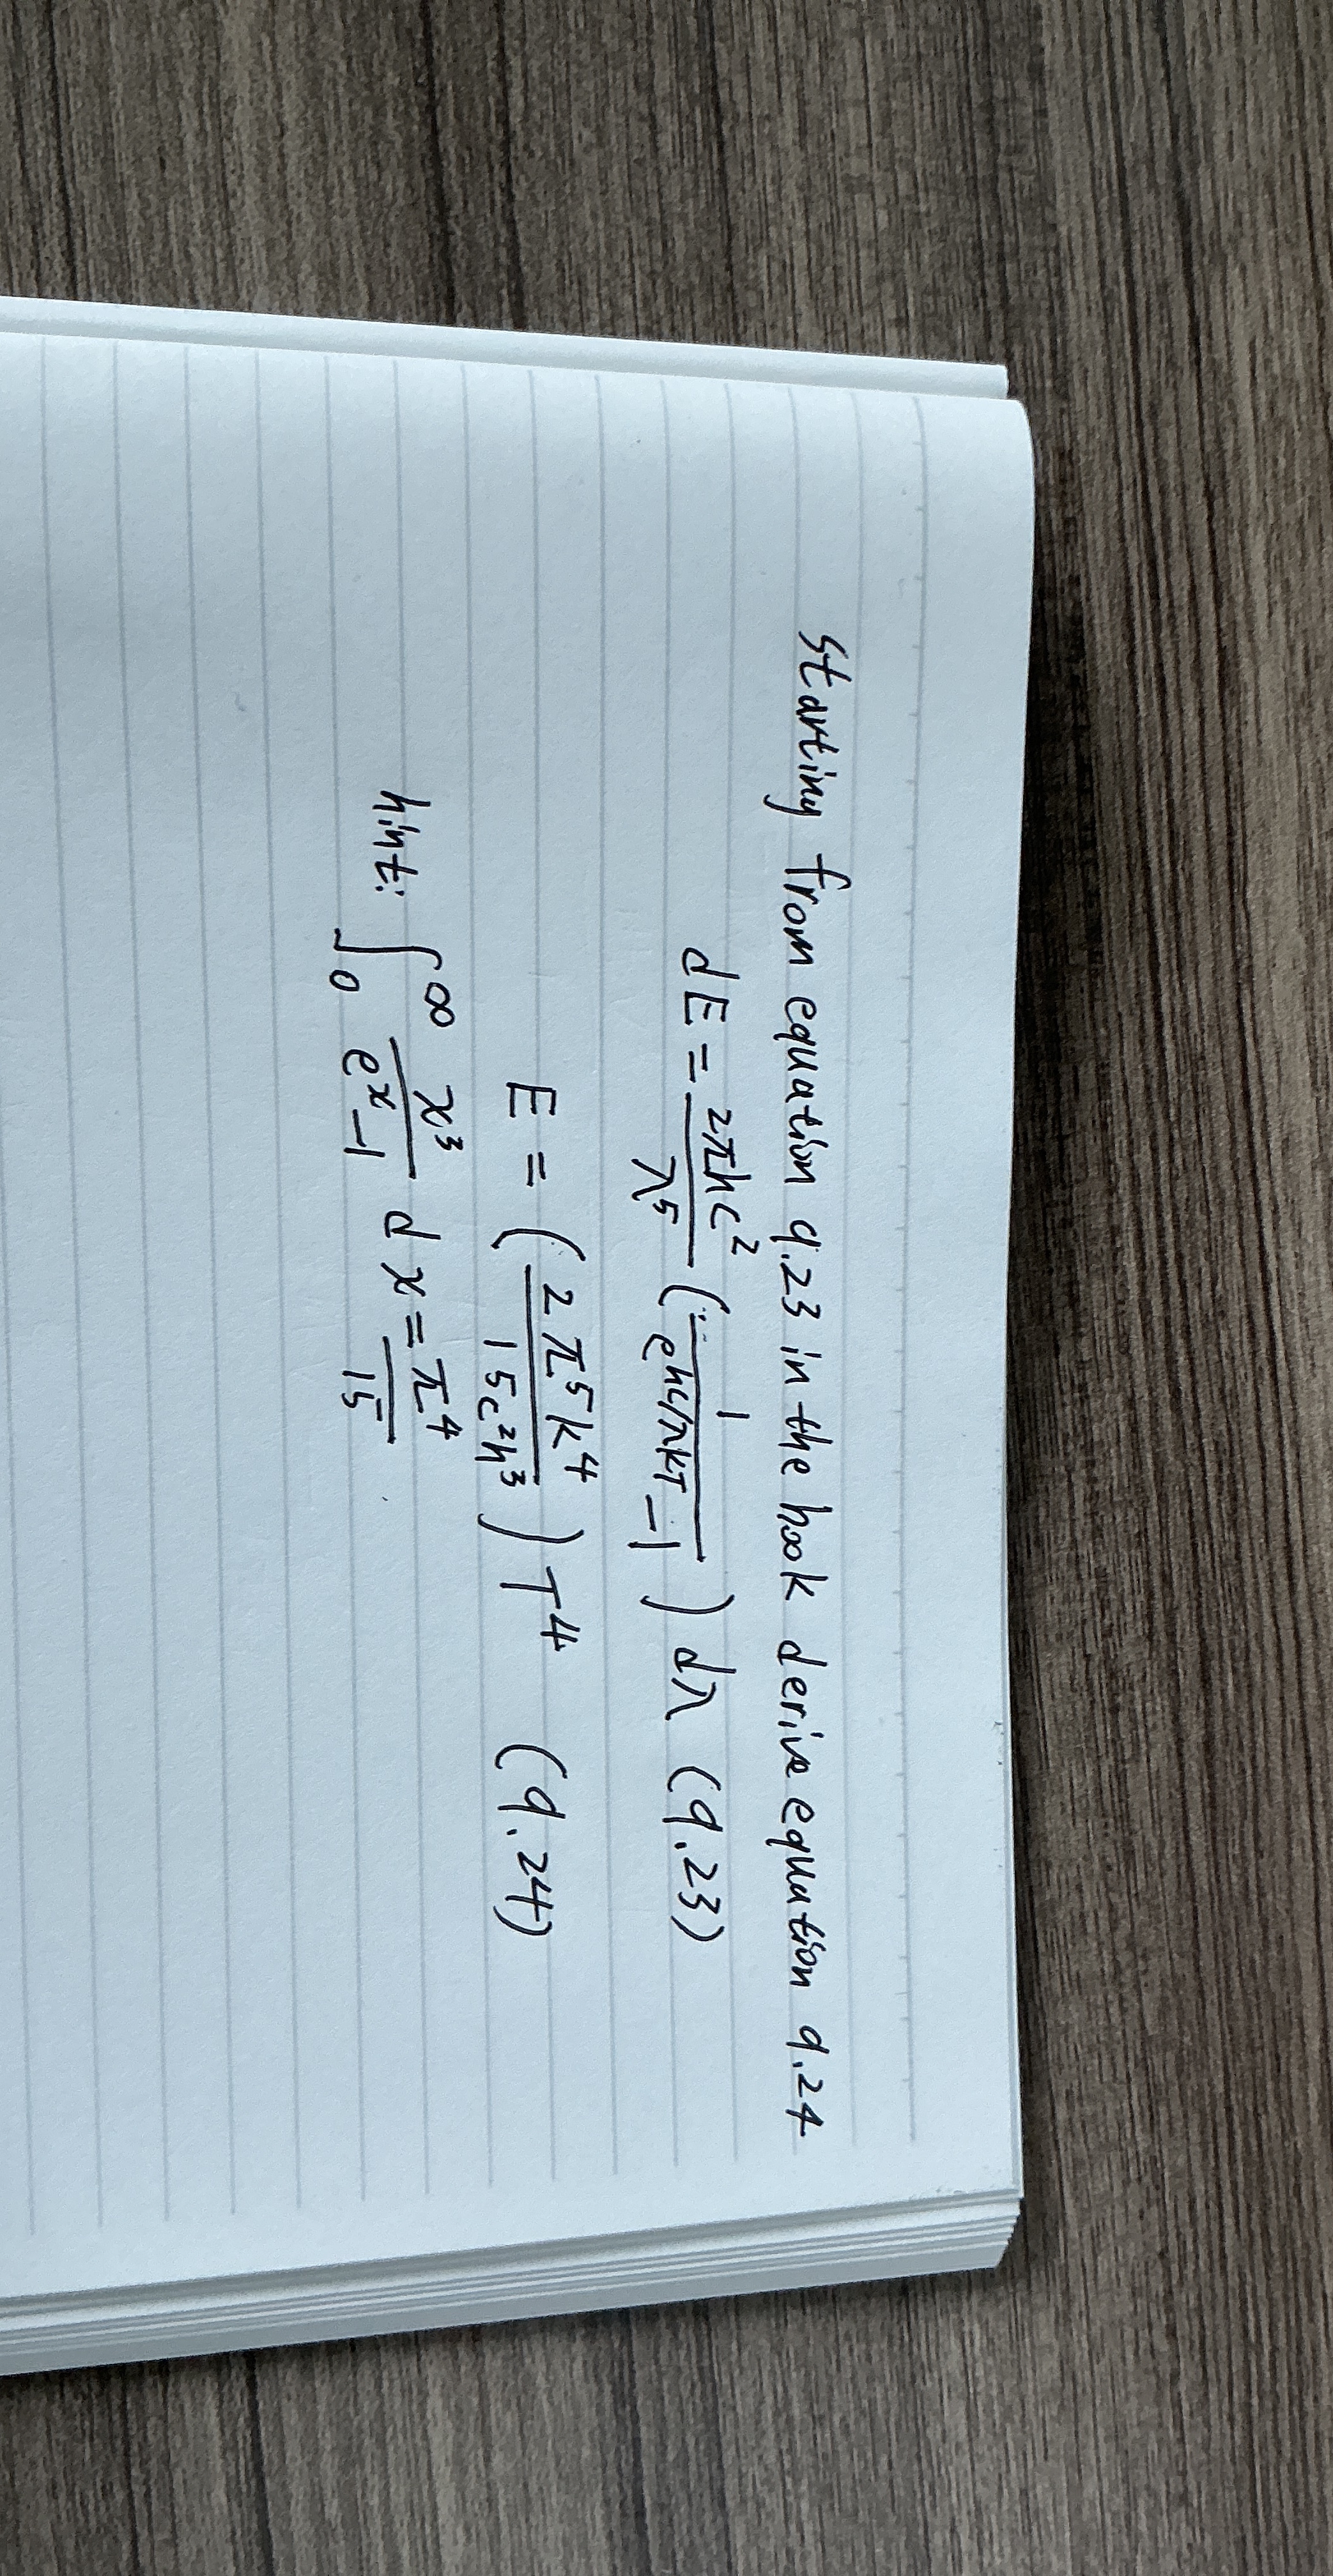 Starting from equation 9.23 in the book derive equation 9.24
dE = 2πhc²/λ⁵ (1/(e^{hc/λkT} - 1)) dλ (9.23)
E = (2π⁵k⁴/15c²h³) T⁴ (9.24)
hint: ∫₀^∞ x³/(eˣ - 1) dx = π⁴/15